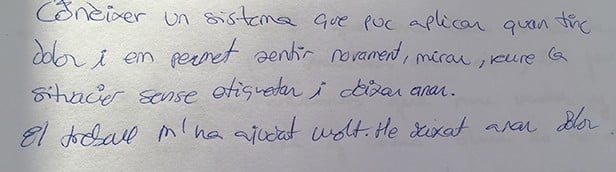 Conèixer un sistema que puc aplicar quan tinc
dolor i em permet sentir novament, mirar, veure la
situacier sense etiquetar i deixar anar.
El treball m'ha ajudat molt. He deixat anar dolor.